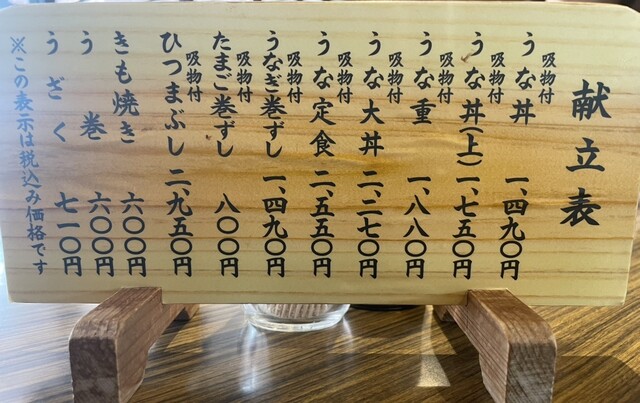 献立表
うな丼 吸物付 一、四九〇円
うな丼(上) 吸物付 一、七五〇円
うな重 吸物付 一、八八〇円
うな大丼 吸物付 二、二七〇円
うな定食 吸物付 二、五五〇円
うなぎ巻ずし 吸物付 一、四九〇円
たまご巻ずし 吸物付 八〇〇円
ひつまぶし 吸物付 二、九五〇円
きも焼き 六〇〇円
う巻 六〇〇円
うざく 七一〇円
※この表示は税込み価格です